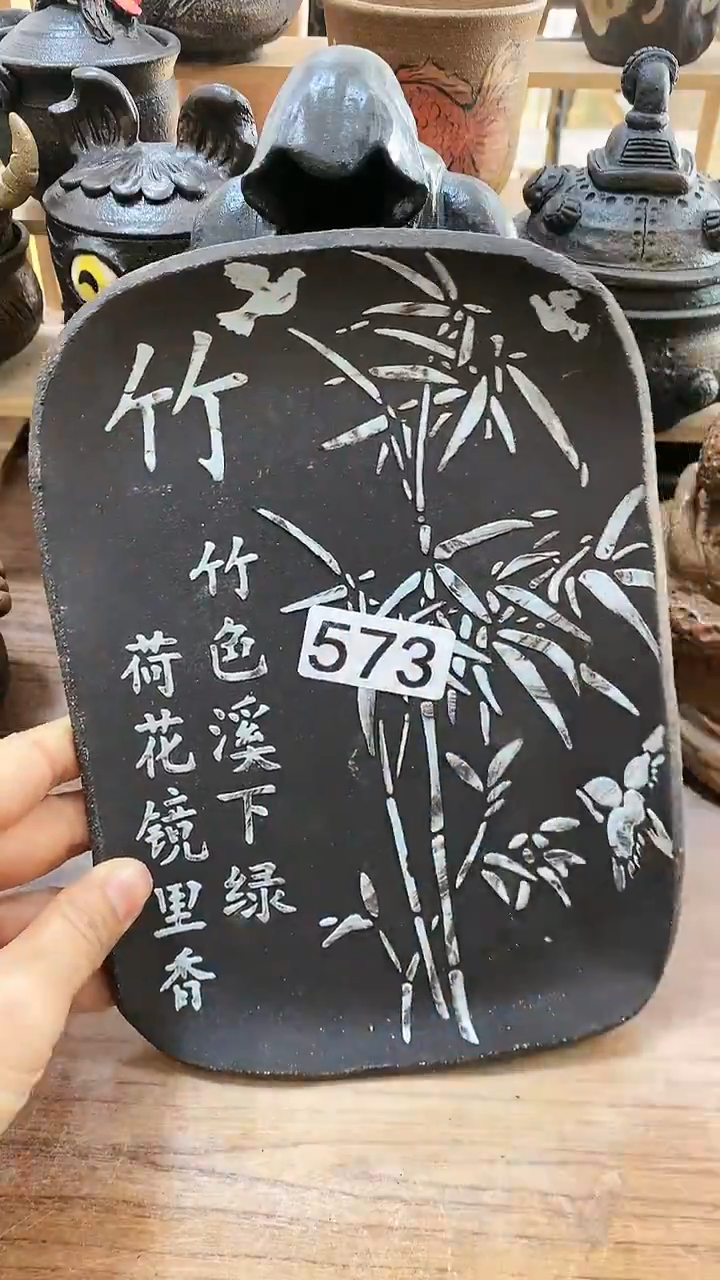 竹
竹色溪下绿
荷花镜里香
573